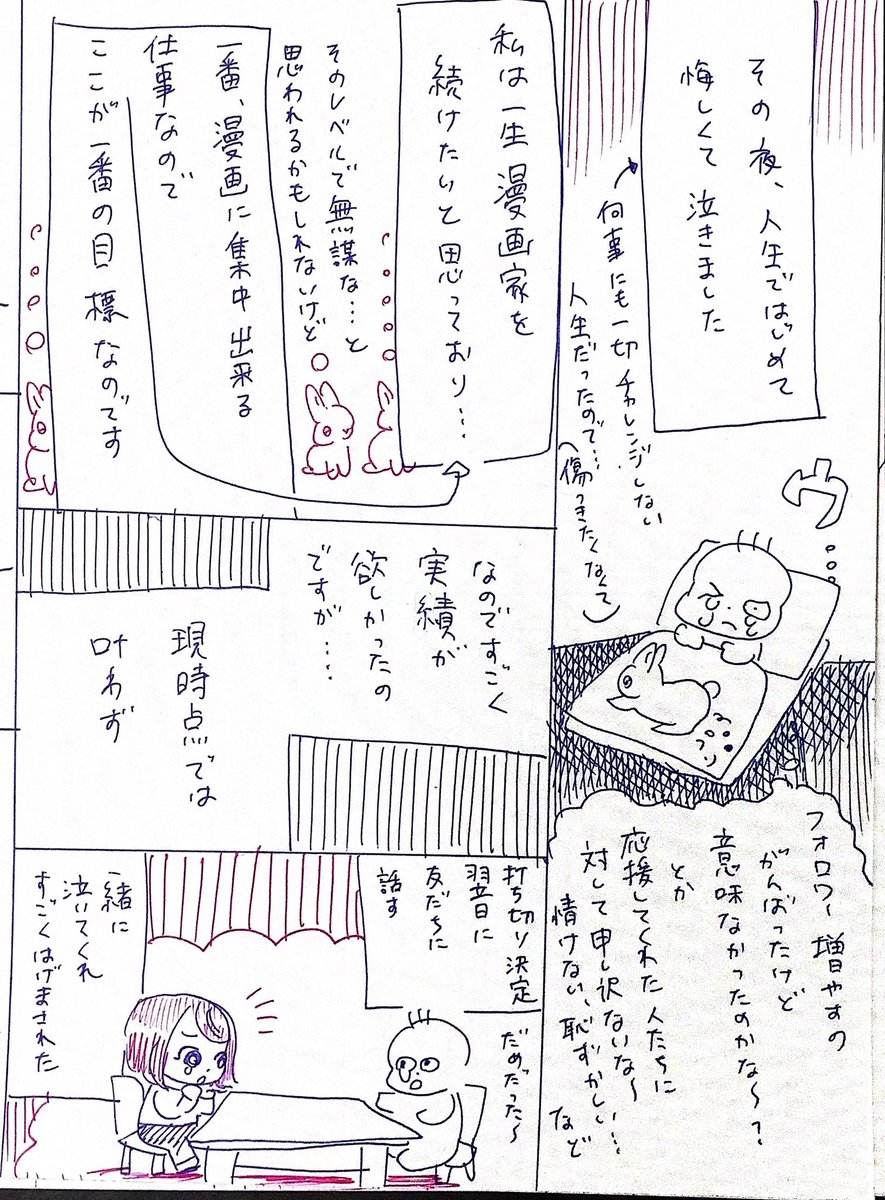 その夜、人生ではじめて
悔しくて泣きました
何事にも一切チャレンジしない
人生だったので…
(傷つきたくなくて)
ウ…
フォロワー増やすの
がんばったけど
意味なかったのかな〜?
とか
応援してくれた人たちに
対して申し訳ないな〜
情けない、恥ずかしい…
など
私は一生漫画家を
続けたいと思っており…
そのレベルで無謀な…と
思われるかもしれないけど
一番、漫画に集中出来る
仕事なので
ここが一番の目標なのです
なのですごく
実績が
欲しかったの
ですが…
現時点では
叶わず
打ち切り決定
翌日に
友だちに
話す
だめだった〜
一緒に
泣いてくれ
すごくはげまされた